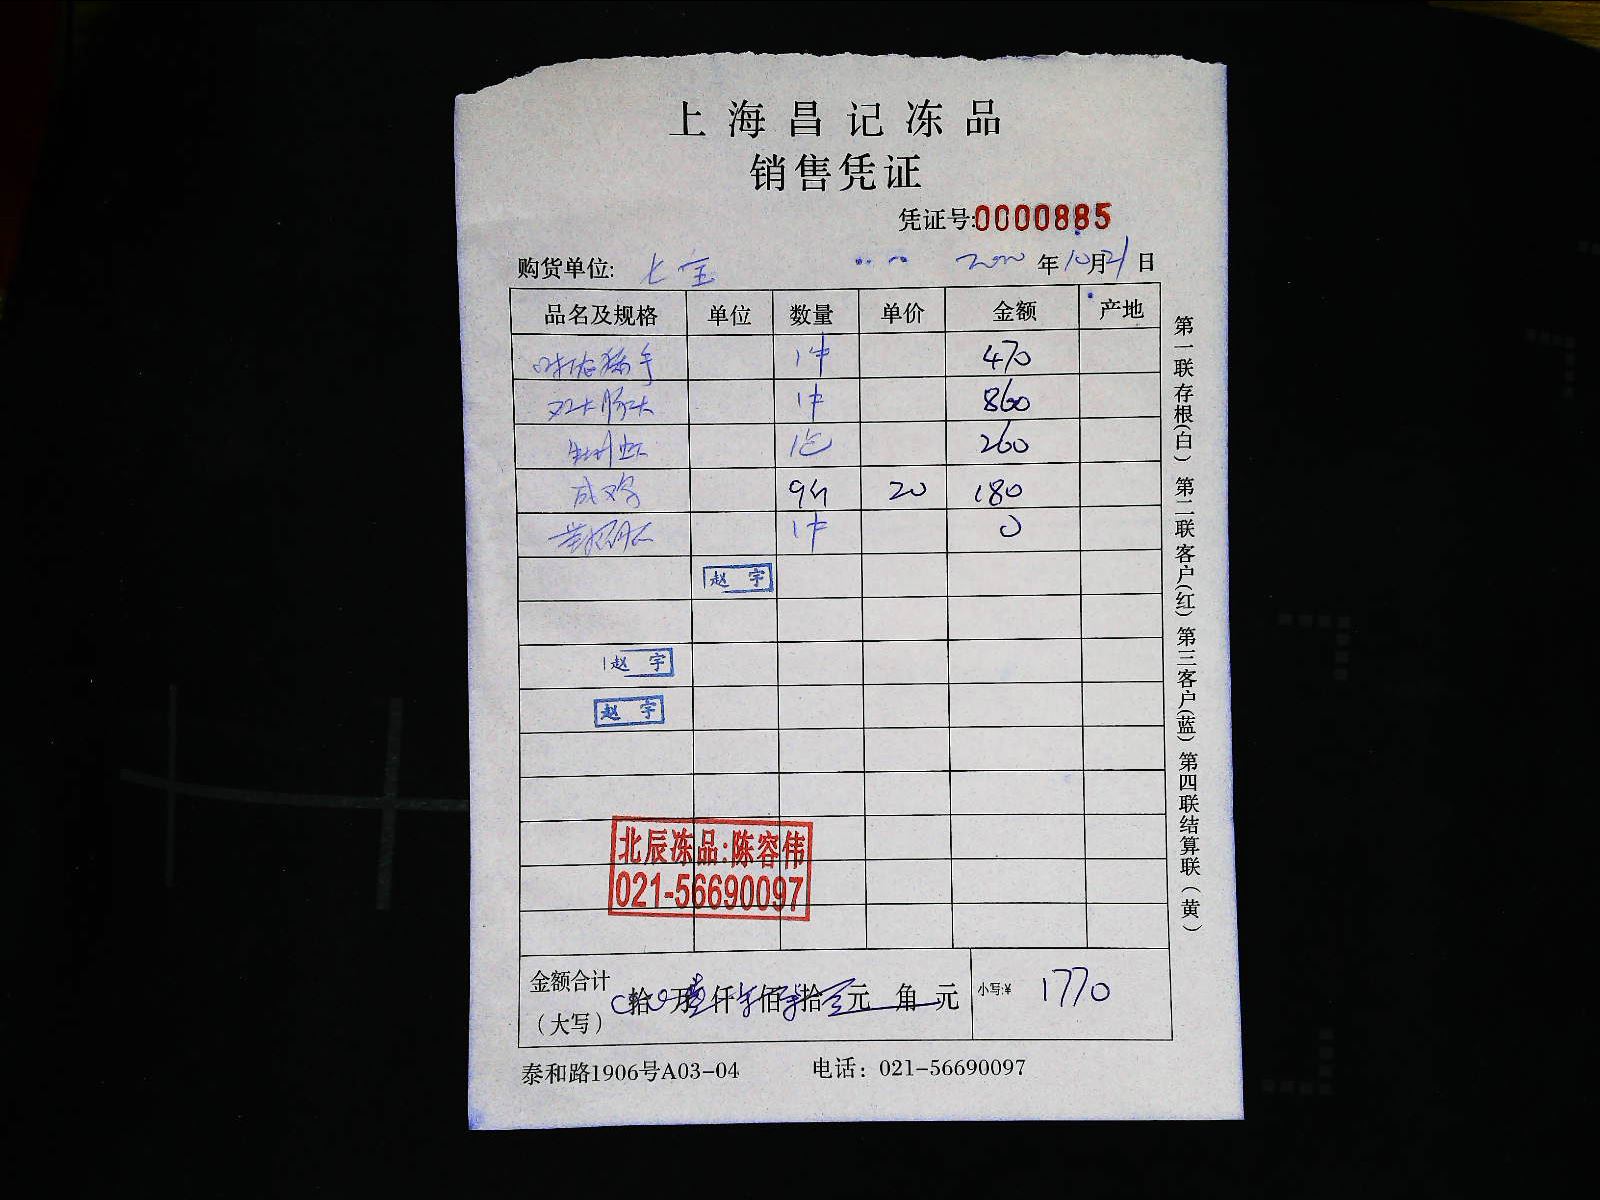 上海昌记冻品
销售凭证
凭证号:0000885
购货单位: 七宝 年10月21日
品名及规格 单位 数量 单价 金额 产地
1件 470
1件 860
1包 260
成鸡 9只 20 180
1件 0
赵宇
赵宇
赵宇
北辰冻品:陈容伟
021-56690097
金额合计 拾 万 仟 佰 拾 元 角 元 小写:¥ 1770
(大写)
泰和路1906号A03-04 电话: 021-56690097
第一联存根(白) 第二联客户(红) 第三客户(蓝) 第四联结算联(黄)